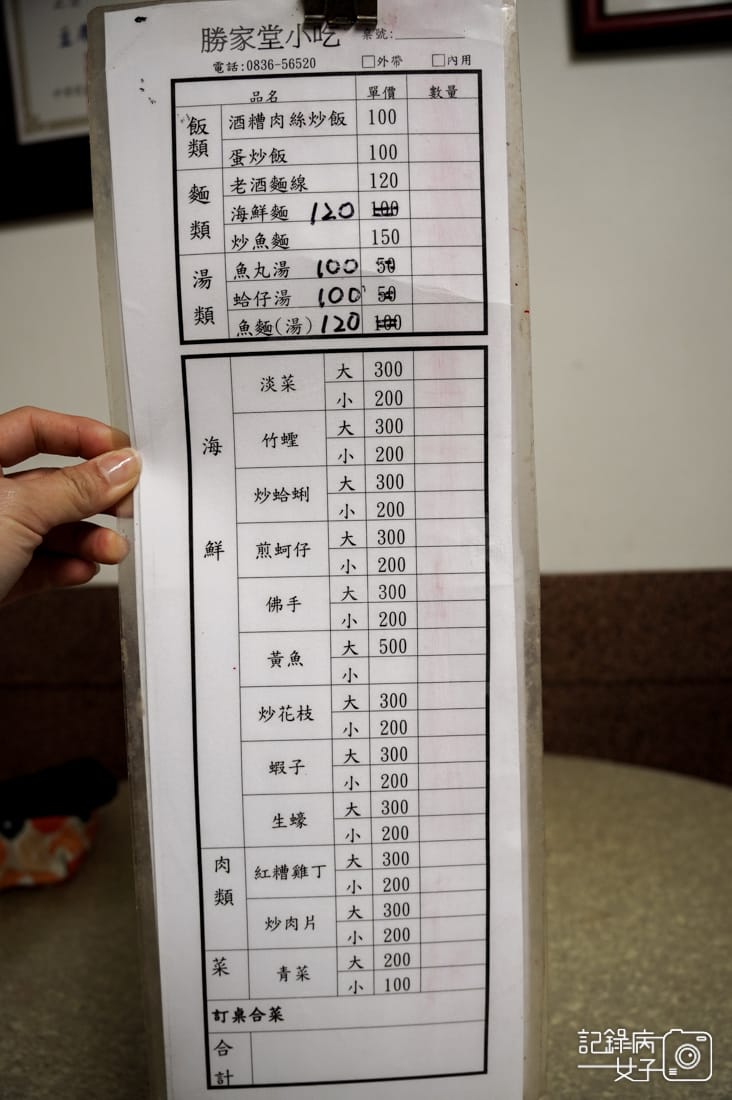 勝家堂小吃 桌號:
電話:0836-56520 □外帶 □內用
品名 單價 數量
飯類
酒糟肉絲炒飯 100
蛋炒飯 100
麵類
老酒麵線 120
海鮮麵 120 100
炒魚麵 150
湯類
魚丸湯 100 50
蛤仔湯 100 50
魚麵(湯) 120 100
海鮮
淡菜 大 300
小 200
竹蟶 大 300
小 200
炒蛤蜊 大 300
小 200
煎蚵仔 大 300
小 200
佛手 大 300
小 200
黃魚 大 500
小
炒花枝 大 300
小 200
蝦子 大 300
小 200
生蠔 大 300
小 200
肉類
紅糟雞丁 大 300
小 200
炒肉片 大 300
小 200
菜
青菜 大 200
小 100
訂桌合菜
合計
記錄病
女子